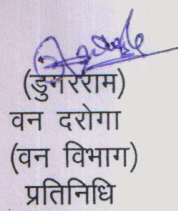 (डुगरराम)
वन दरोगा
(वन विभाग)
प्रतिनिधि